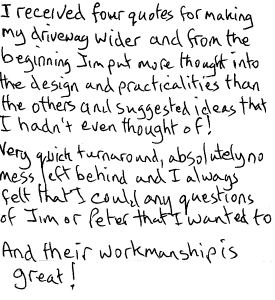 I received four quotes for making
my driveway wider and from the
beginning Jim put more thought into
the design and practicalities than
the others and suggested ideas that
I hadn't even thought of!
Very quick turnaround, absolutely no
mess left behind and I always
felt that I could any questions
of Jim or Peter that I wanted to
And their workmanship is
great!